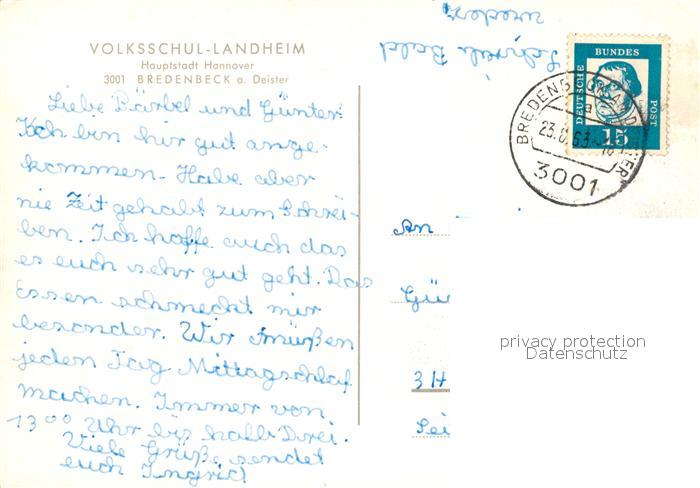 VOLKSSCHUL-LANDHEIM
Hauptstadt Hannover
3001 BREDENBECK a. Deister
Liebe Bärbel und Günter.
Ich bin hir gut ange-
kommen. Habe aber
nie Zeit gehabt zum Schrei-
ben. Ich hoffe auch das
es euch sehr gut geht. Das
Essen schmeckt mir
besonder. Wir müßen
jeden Tag Mittagschlaf
machen. Immer von
13⁰⁰ Uhr bis halb Drei.
Viele Grüße sendet
euch Ingrid
Schreib Bald
wieder
DEUTSCHE
BUNDES
POST
15
BREDENB
23.
63
3001
An
Gü
3 H
privacy protection
Datenschutz